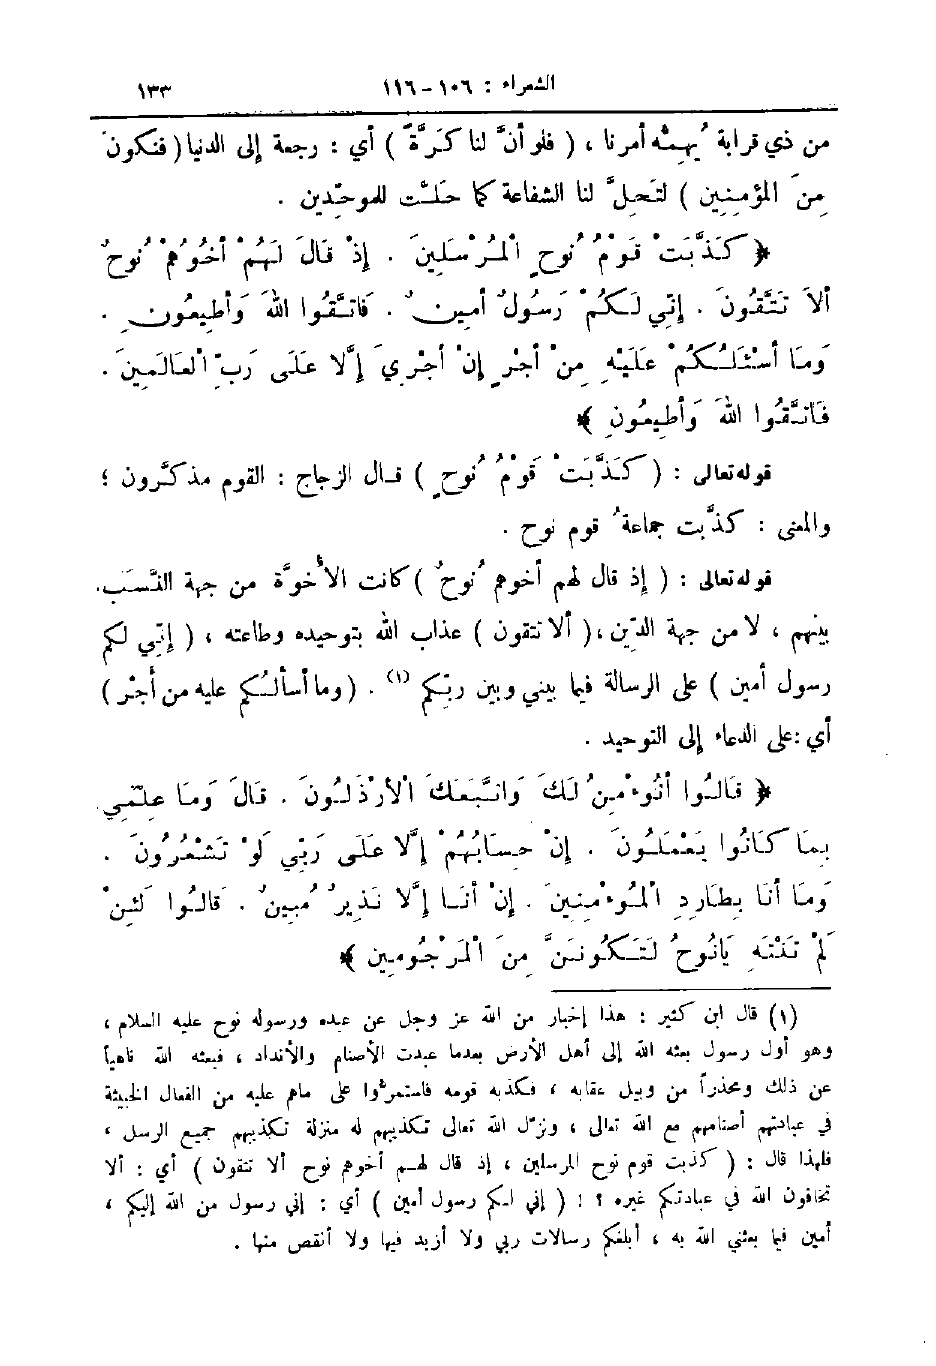 الشعراء : ١٠٦ - ١١٦ ١٣٣
من ذي قرابة يُهِمُّه أمرنا ، ( فلو أنَّ لنا كَرَّةً ) أي : رجعة إلى الدنيا ( فنكونَ
مِنَ المؤمِنِين ) لتَحِلَّ لنا الشفاعة كما حَلَّت للموحِّدين .
﴿ كَذَّبَتْ قَوْمُ نُوحٍ الْمُرْسَلِينَ . إِذْ قَالَ لَهُمْ أَخُوهُمْ نُوحٌ
أَلاَ تَتَّقُونَ . إِنِّي لَكُمْ رَسُولٌ أَمِينٌ . فَاتَّقُوا اللهَ وَأَطِيعُونِ .
وَمَا أَسْئَلُكُمْ عَلَيْهِ مِنْ أَجْرٍ إِنْ أَجْرِيَ إِلَّا عَلَى رَبِّ الْعَالَمِينَ .
فَاتَّقُوا اللهَ وَأَطِيعُونِ ﴾
قوله تعالى : ( كَذَّبَتْ قَوْمُ نُوحٍ ) قال الزجاج : القوم مذكَّرون ؛
والمعنى : كذَّبت جماعةُ قوم نوح .
قوله تعالى : ( إِذ قال لهم أخوهم نُوحٌ ) كانت الأُخوَّة من جهة النَّسَب
بينهم ، لا من جهة الدِّين ، ( ألا تتقون ) عذاب الله بتوحيده وطاعته ، ( إِنِّي لكم
رسول أمين ) على الرسالة فيما بيني وبين ربِّكم (١) . ( وما أسألُكم عليه من أَجْر )
أي : على الدعاء إلى التوحيد .
﴿ قَالُوا أَنُوءْمِنُ لَكَ وَاتَّبَعَكَ الْأَرْذَلُونَ . قَالَ وَمَا عِلْمِي
بِمَا كَانُوا يَعْمَلُونَ . إِنْ حِسَابُهُمْ إِلَّا عَلَى رَبِّي لَوْ تَشْعُرُونَ .
وَمَا أَنَا بِطَارِدِ الْمُوءْمِنِينَ . إِنْ أَنَا إِلَّا نَذِيرٌ مُبِينٌ . قَالُوا لَئِنْ
لَمْ تَنْتَهِ يَانُوحُ لَتَكُونَنَّ مِنَ الْمَرْجُومِينَ ﴾
(١) قال ابن كثير : هذا إخبار من الله عز وجل عن عبده ورسوله نوح عليه السلام ،
وهو أول رسول بعثه الله إلى أهل الأرض بعدما عبدت الأصنام والأنداد ، فبعثه الله ناهياً
عن ذلك ومحذراً من وبيل عقابه ، فكذبه قومه فاستمرُّوا على ماهم عليه من الفعال الخبيثة
في عبادتهم أصنامهم مع الله تعالى ، ونزّل الله تعالى تكذيبهم له منزلة تكذيبهم جميع الرسل ،
فلهذا قال : ( كذبت قوم نوح المرسلين ، إذ قال لهم أخوهم نوح ألا تتقون ) أي : ألا
تخافون الله في عبادتكم غيره ؟ ! ( إني لكم رسول أمين ) أي : إني رسول من الله إليكم ،
أمين فيما بعثني الله به ، أبلغكم رسالات ربي ولا أزيد فيها ولا أنقص منها .